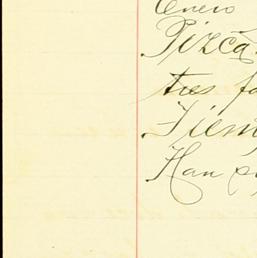 Enero
Pizca
tres fa
Tiem
Han p